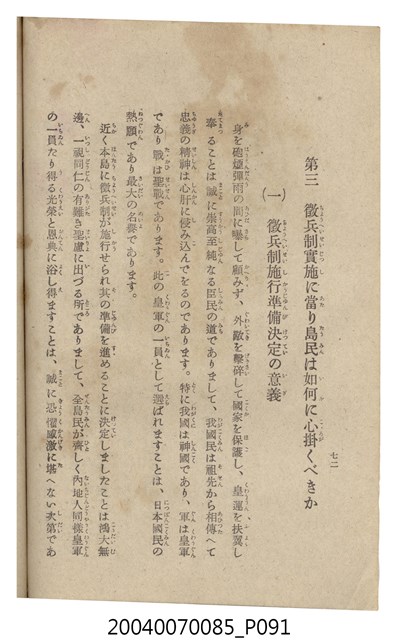 七二
第三 徵兵制實施に當り島民は如何に心掛くべきか
(一) 徵兵制施行準備決定の意義
身を砲煙彈雨の間に曝して顧みず、外敵を擊碎して國家を保護し、皇運を扶翼し
奉ることは誠に崇高至純なる臣民の道でありまして、我國民は祖先から相傳へて
忠義の精神は心肝に侵み込んでをるのであります。特に我國は神國であり、軍は皇軍
であり戰は聖戰であります。此の皇軍の一員として選ばれますことは、日本國民の
熱願であり最大の名譽であります。
近く本島に徵兵制が施行せられ其の準備を進めることに決定しましたことは鴻大無
邊、一視同仁の有難き聖慮に出づる所でありまして、全島民が齊しく內地人同樣皇軍
の一員たり得る光榮と恩典に浴し得ますことは、誠に恐懼感激に堪へない次第であ
20040070085_P091